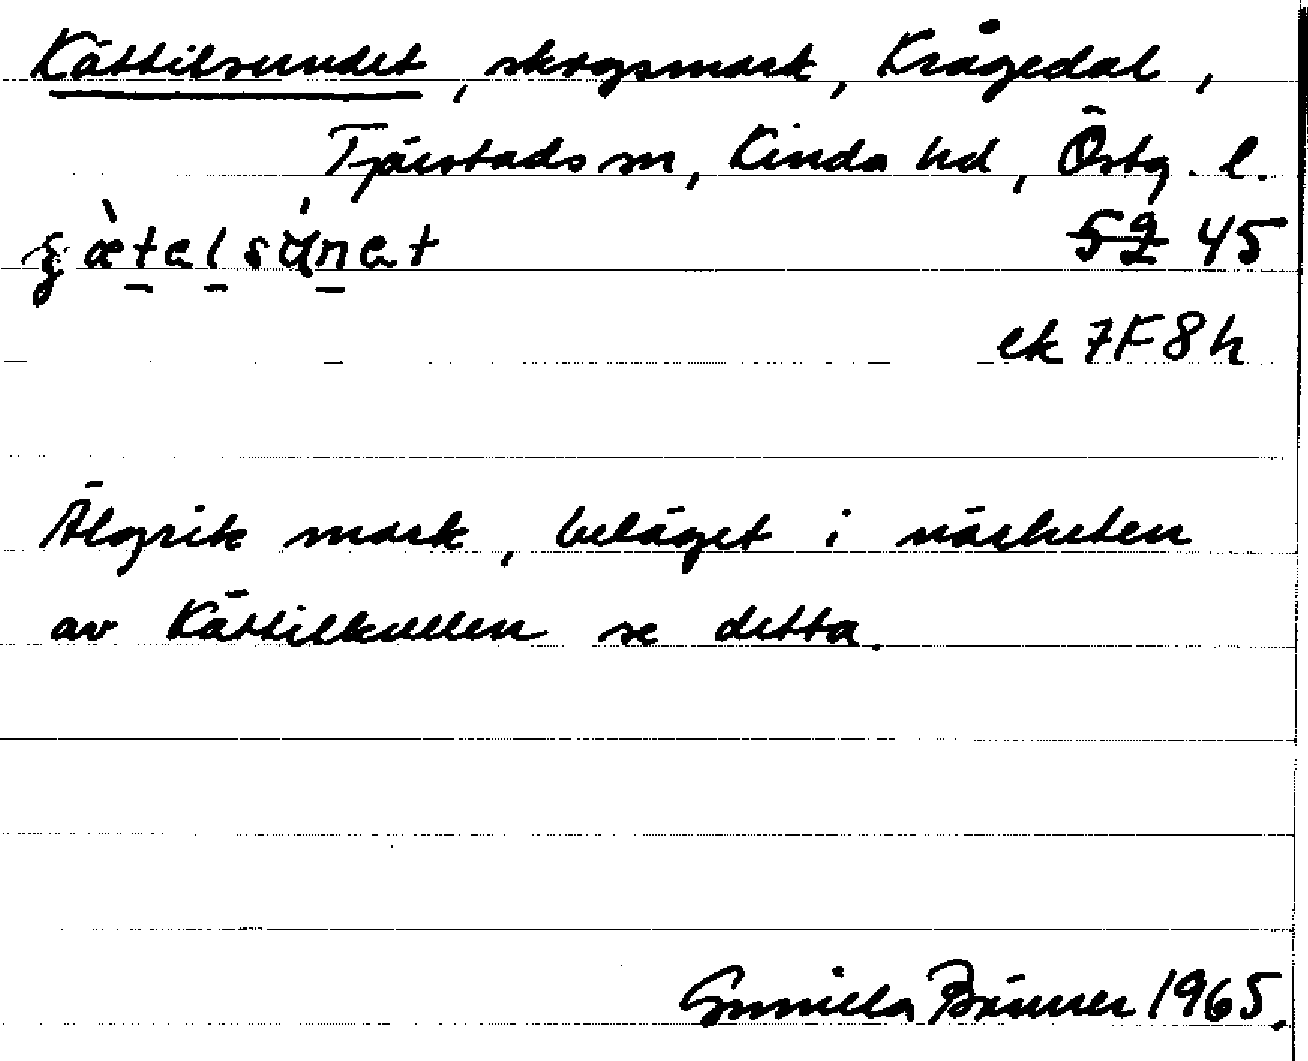 Kättilsundet, skogsmark, Krågedal,
Tjärstads sn, Kinda hd, Östg. l.
52 45
ek 7F8h
Älgrik mark, beläget i närheten
av Kättilkullen se detta.
Gunilla 1965.